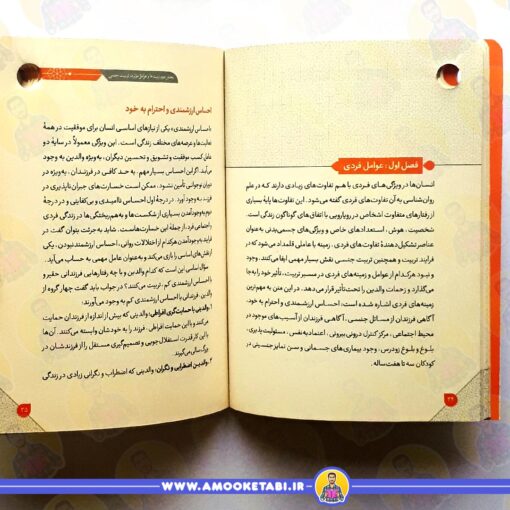 فصل اول: عوامل فردی
انسان‌ها در ویژگی‌های فردی با هم تفاوت‌های زیادی دارند که در علم
روان‌شناسی به آن تفاوت‌های فردی گفته می‌شود. این تفاوت‌ها پایهٔ بسیاری
از رفتارهای متفاوت اشخاص در رویارویی با اتفاق‌های گوناگون زندگی است.
شخصیت، هوش، استعدادهای خاص و ویژگی‌های جسمی‌بدنی به عنوان
عناصر تشکیل‌دهندهٔ تفاوت‌های فردی، زمینه یا عاملی قلمداد می‌شود که در
فرایند تربیت و همچنین تربیت جنسی نقش بسیار مهمی ایفا می‌کنند. وجود
و نبود هرکدام از عوامل و زمینه‌های فردی در مسیر تربیت، تأثیر خود را به‌جا
می‌گذارد و زحمات والدین را تحت‌تأثیر قرار می‌دهد. در این متن به مهم‌ترین
زمینه‌های فردی اشاره شده است: احساس ارزشمندی و احترام به خود،
آگاهی فرزندان از مسائل جنسی، آگاهی فرزندان از آسیب‌های موجود در
محیط اجتماعی، مرکز کنترل درونی بیرونی، اعتماد به نفس، مسئولیت‌پذیری،
بلوغ و بلوغ زودرس، وجود بیماری‌های جسمانی و سن تمایز جنسیتی در
کودکان سه تا هفت‌ساله.
۳۴
احساس ارزشمندی و احترام به خود
«احساس ارزشمندی» یکی از نیازهای اساسی انسان برای موفقیت در همهٔ
فعالیت‌ها و عرصه‌های مختلف زندگی است. این ویژگی معمولاً در سایهٔ دو
عامل کسب موفقیت و تشویق و تحسین دیگران، به‌ویژه والدین به وجود
می‌آید. اگر این احساس بسیار مهم به حد کافی در فرزندان، به‌ویژه در
دوران نوجوانی تأمین نشود، ممکن است خسارت‌های جبران‌ناپذیری در
فرزند به وجود آورد. در درجهٔ اول احساس ناامیدی و بی‌کفایتی و در درجهٔ
دوم به‌وجودآمدن بسیاری از شکست‌ها و به‌هم‌ریختگی‌ها در زندگی فردی
اجتماعی فرد، از جملهٔ این خسارت‌هاست. شاید به جرئت بتوان گفت در
فرایند به‌وجودآمدن هرکدام از اختلالات روانی، احساس ارزشمند نبودن، یکی
از نقش‌های اساسی را بازی می‌کند و به‌عنوان عامل مهمی به حساب می‌آید.
سؤال اساسی این است که کدام والدین و با چه رفتارهایی فرزندانی حقیر و
با احساس ارزشمندی کم، تربیت می‌کنند؟ در جواب باید گفت چهار گروه از
والدین، فرزندانی با احساس ارزشمندی کم به وجود می‌آورند:
۱. والدینی با حمایت‌گری افراطی: والدینی که بیش از اندازه از فرزندان حمایت
می‌کنند و با این حمایت افراطی، فرزند را به خودشان وابسته می‌کنند. آن‌ها
با این کار قدرت استقلال‌جویی و تصمیم‌گیری مستقل را از فرزندشان در
بزرگ‌سالی می‌گیرند.
۲. والدین اضطرابی و نگران: والدینی که اضطراب و نگرانی زیادی در زندگی
۳۵
WWW.AMOOKETABI.IR